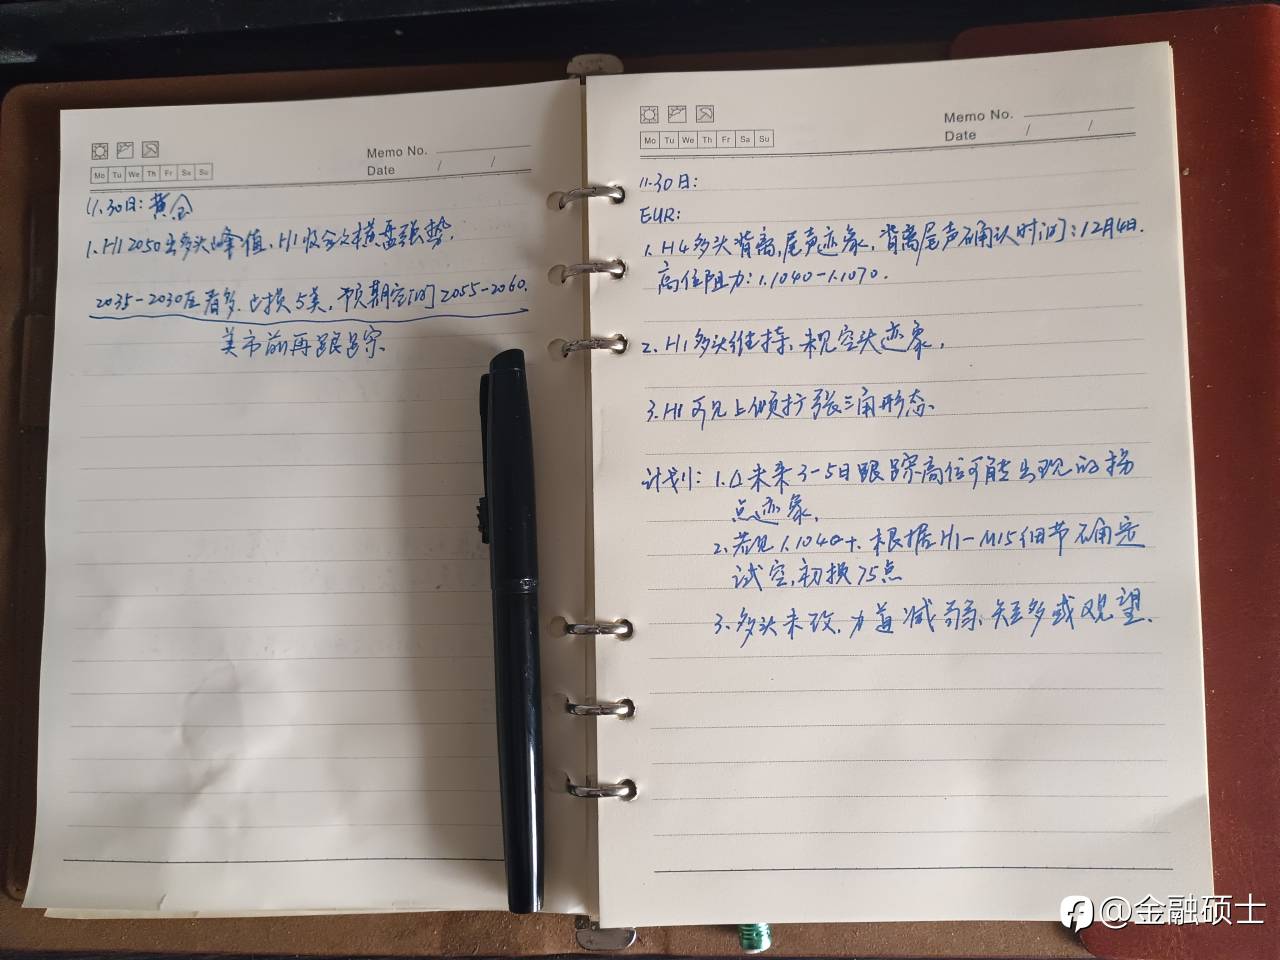 Memo No.
Date / /
Mo Tu We Th Fr Sa Su
11.30日: 黄金
1. H1 2050出多头峰值、H1收多次横盘强势.
2035-2030区看多. 止损5美, 预期空间2055-2060.
美市前再跟踪
Memo No.
Date / /
Mo Tu We Th Fr Sa Su
11.30日:
EUR:
1. H4多头背离, 尾声迹象, 背离尾声确认时间: 12月4日.
高位阻力: 1.1040-1.1070.
2. H1多头维持、未见空头迹象.
3. H1可见上倾扩张三角形态.
计划: 1. △未来3-5日跟踪高位可能出现的拐
点迹象.
2. 若见1.1040+. 根据H1-M15细节确定
试空, 初损75点
3. 多头未改, 力道减弱、短多或观望.
@金融硕士